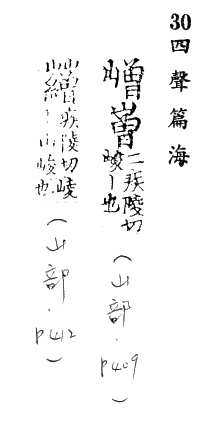 30四聲篇海
嶒
二疾陵切
丨也
(山部.P409)
疾陵切崚
丨山峻也
(山部.P412)